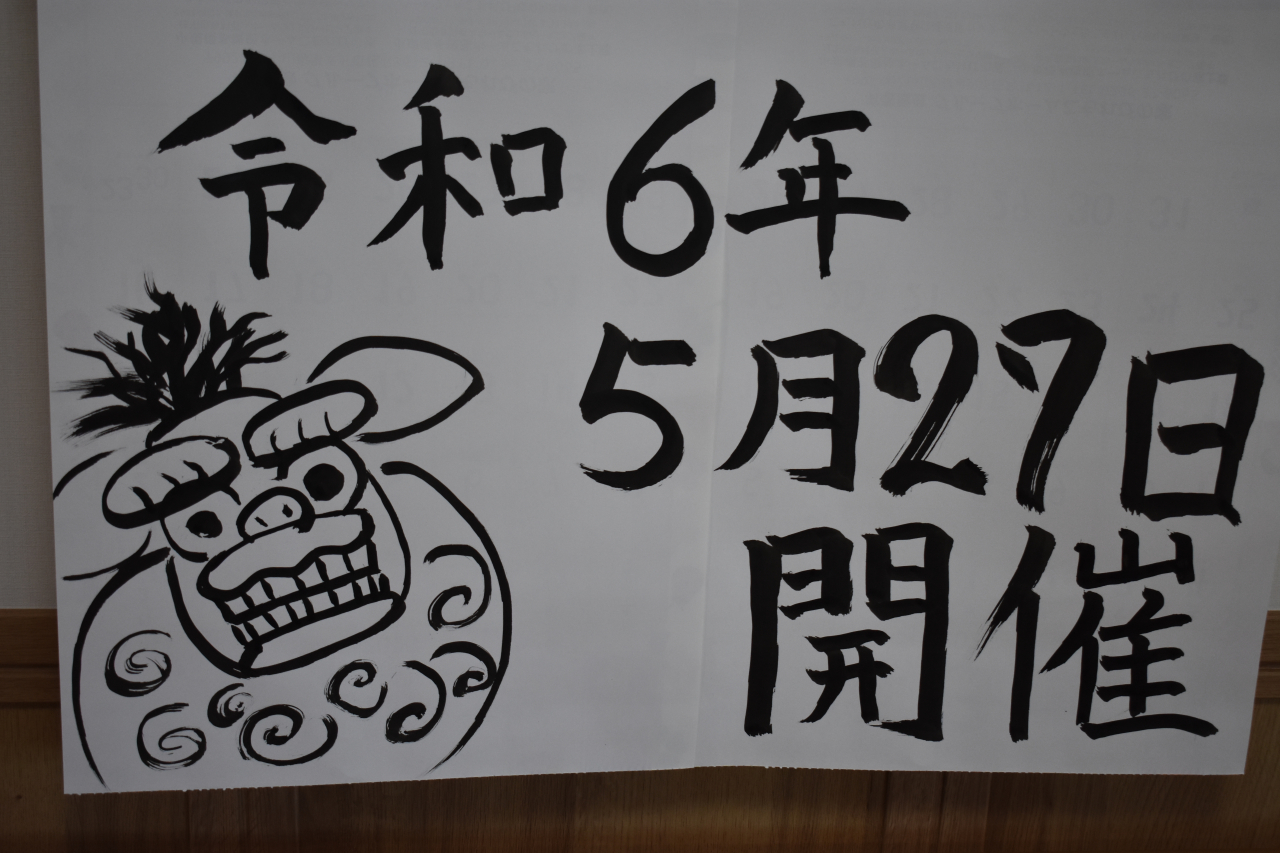 令和6年
5月27日
開催